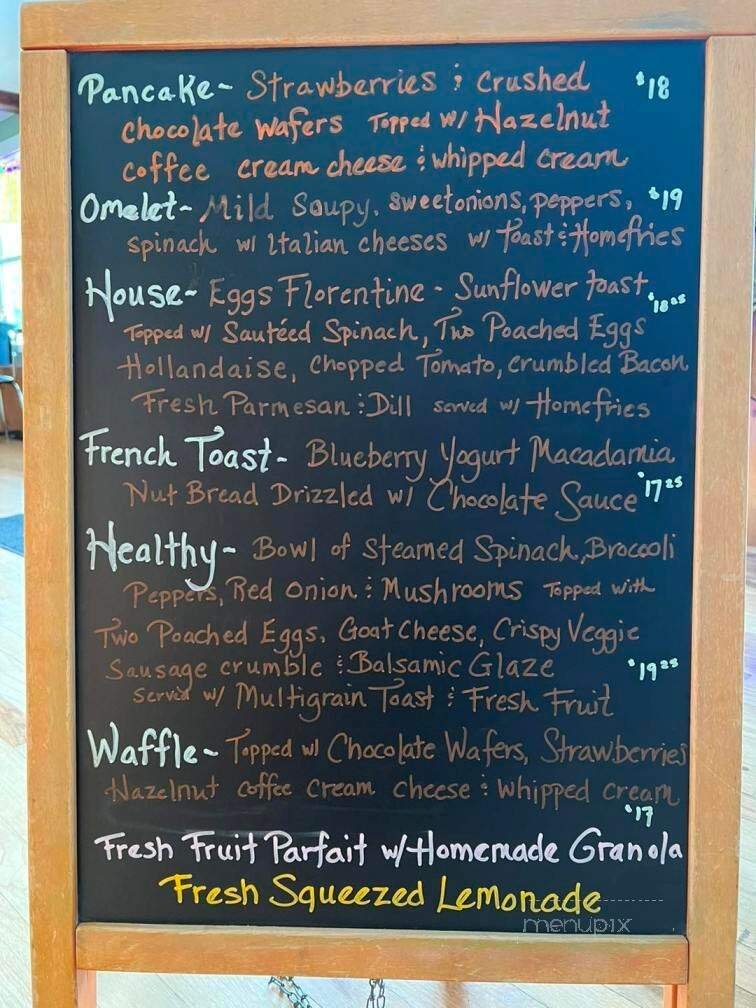 Pancake- Strawberries & Crushed $18
chocolate wafers Topped w/ Hazelnut
coffee cream cheese & whipped cream
Omelet- Mild Soupy, sweet onions, peppers, $19
spinach w/ Italian cheeses w/ Toast & Homefries
House- Eggs Florentine - Sunflower toast $18.95
Topped w/ Sautéed Spinach, Two Poached Eggs
Hollandaise, Chopped Tomato, Crumbled Bacon
Fresh Parmesan & Dill served w/ Homefries
French Toast- Blueberry Yogurt Macadamia
Nut Bread Drizzled w/ Chocolate Sauce $17.25
Healthy- Bowl of Steamed Spinach, Broccoli
Peppers, Red Onion & Mushrooms Topped with
Two Poached Eggs, Goat Cheese, Crispy Veggie
Sausage crumble & Balsamic Glaze $19.25
Served w/ Multigrain Toast & Fresh Fruit
Waffle- Topped w/ Chocolate Wafers, Strawberries
Hazelnut coffee cream cheese & whipped cream
$17
Fresh Fruit Parfait w/ Homemade Granola
Fresh Squeezed Lemonade
menupix